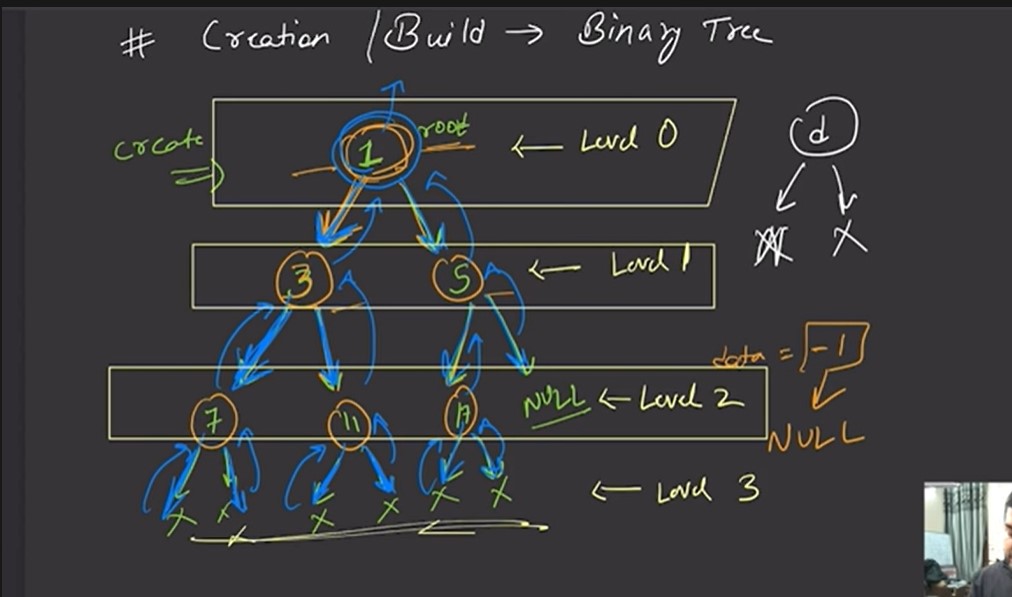 # Creation / Build → Binary Tree
create
1
root
← Level 0
d
X X
3
5
← Level 1
data = -1
7
11
17
NULL
← Level 2
NULL
X X X X X X
← Level 3